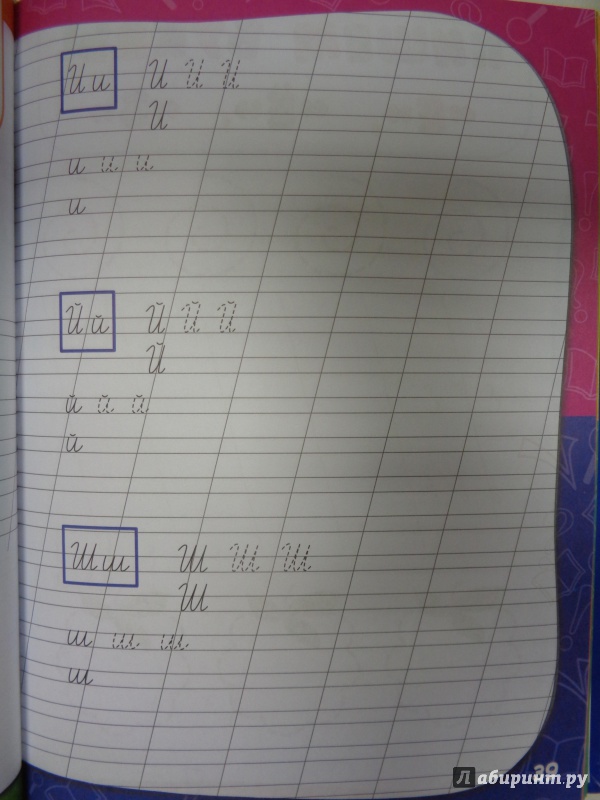 Ии И И И
И
и и и
и
Йй Й Й Й
Й
й й й
й
Шш Ш Ш Ш
Ш
ш ш ш
ш
39
Лабиринт.ру